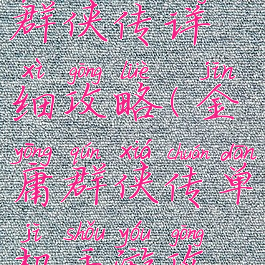 群侠传详
xì gōng lüè jīn
细攻略(金
yōng qún xiá chuán dān
庸群侠传单
jī shǒu yóu gōng
机手游攻